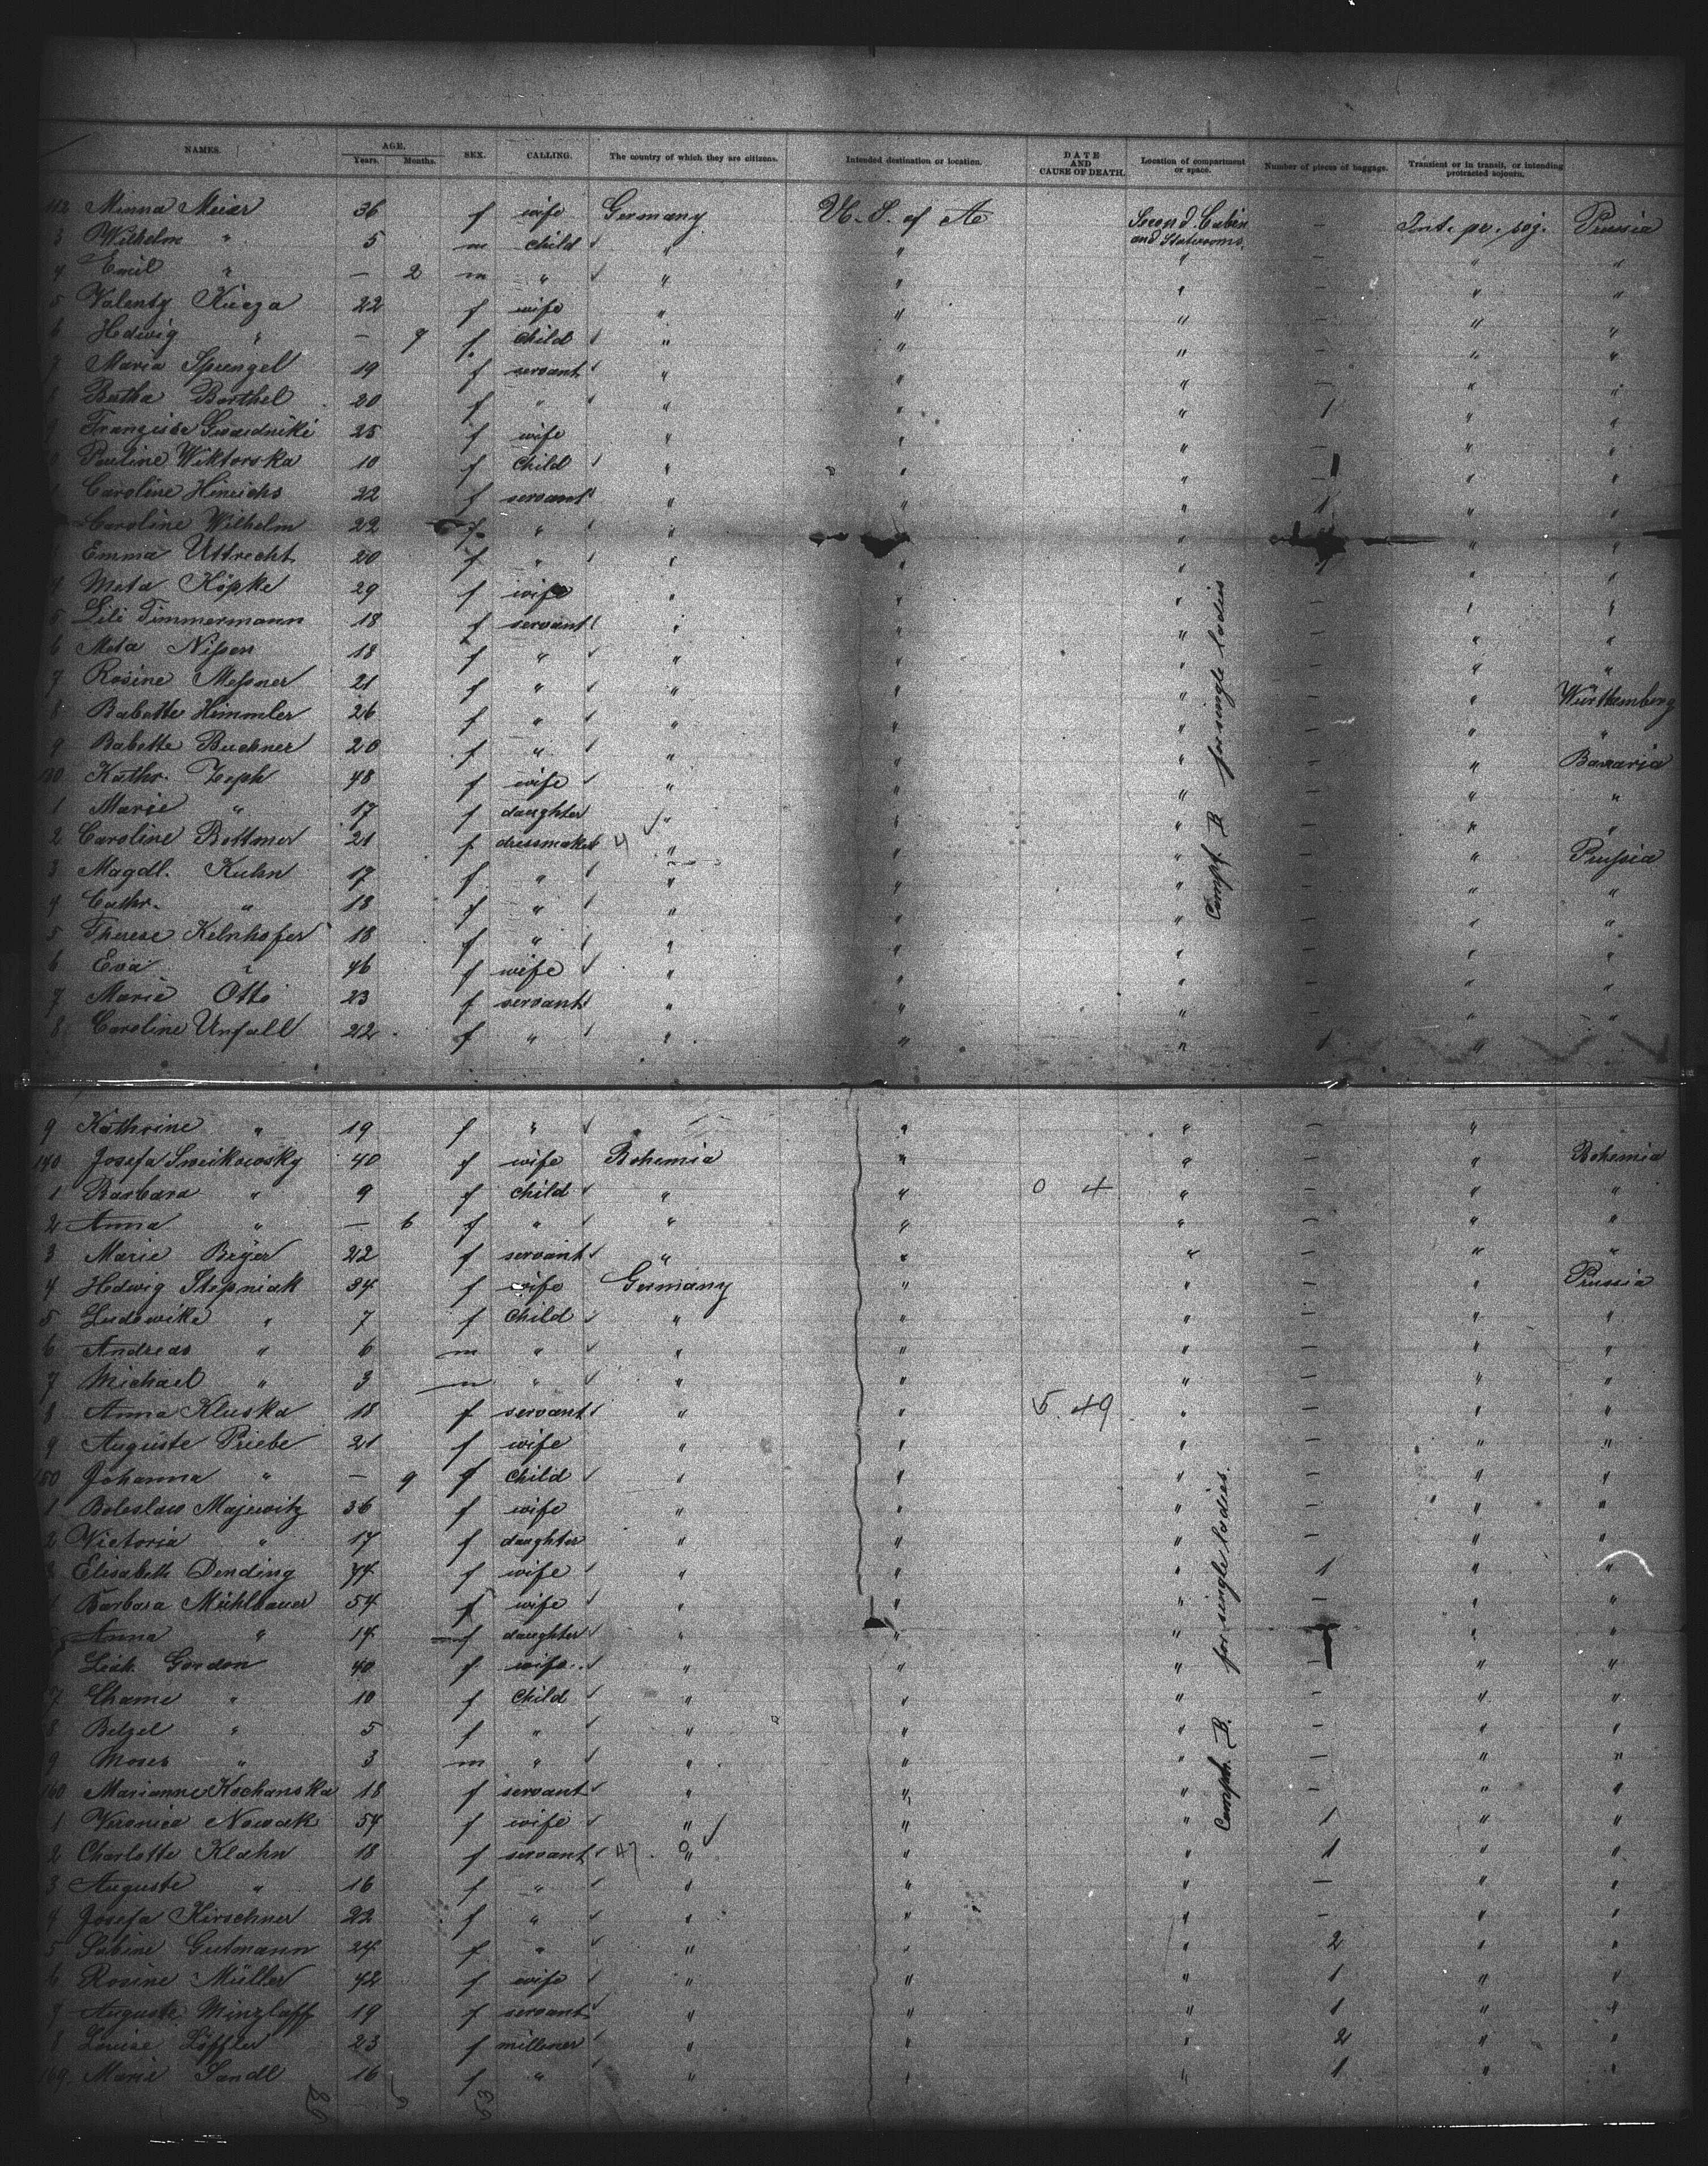 NAMES. AGE. Years. Months. SEX. CALLING. The country of which they are citizens. Intended destination or location. DATE AND CAUSE OF DEATH. Location of compartment or space. Number of pieces of baggage. Transient or in transit, or intending protracted sojourn.
112 Minna Meier 36 f wife Germany U. S. of A Second Cabin and Staterooms. — Int. pr. soj. Prussia
3 Wilhelm " 5 m child " " " — " "
4 Emil " — 2 m " " " " — " "
5 Valenty Kucza 22 f wife " " " — " "
6 Hedwig " — 9 f child " " " — " "
7 Maria Sprengel 19 f servant " " " — " "
8 Batha Barthel 20 f " " " " 1 " "
9 25 f wife " " " — " "
0 Pauline Wiktorska 10 f child " " " — " "
1 Caroline Hinrichs 22 f servant " " " 1 " "
Caroline Wilhelm 22 f " " " " " "
Emma Uttrecht 20 f " " " " 1 " "
4 Meta Köpke 29 f wife " " " — " "
5 Lili Timmermann 18 f servant " " " — " "
6 Meta Nissen 18 f " " " " — " "
7 Rosine Messner 21 f " " " " — " Württemberg
8 Babette Himmler 26 f " " " " — " "
9 Babette Buchner 20 f " " " " — " Bavaria
130 Kathr. Zeph 48 f wife " " " — " "
1 Marie " 17 f daughter " " " — " "
2 Caroline Bottmer 21 f dressmaker " " " — " Prussia
3 Magdl. Kuhn 17 f " " " " — " "
4 Cathr. " 18 f " " " " — " "
5 Therese Kelnhofer 18 f " " " " — " "
6 Eva " 46 f wife " " " — " "
7 Marie Otto 23 f servant " " " — " "
8 Caroline Unfall 22 f " " " " 1 "
Compt. B for single ladies
9 Kathrine " 19 f " " " " — "
140 Josefa Sweikowsky 40 f wife Bohemia " " — " Bohemia
1 Barbara " 9 f child " " 0 4 " — " "
2 Anna " — 6 f " " " " — " "
3 Marie Beyer 22 f servant " " " — " "
4 Hedwig Stepniak 34 f wife Germany " " — " Prussia
5 Ludowika " 7 f child " " " — " "
6 Andreas " 6 m " " " " — " "
7 Michael " 3 m " " " " — " "
8 Anna Kluska 18 f servant " " 5. 49 " — " "
9 Auguste Priebe 21 f wife " " " — " "
150 Johanna " — 9 f child " " " — " "
1 Boleslaw Majewitz 36 f wife " " " — " "
2 Victoria " 17 f daughter " " " — " "
3 Elisabeth Dending 44 f wife " " " 1 " "
4 Barbara Mühlbauer 54 f wife " " " — " "
5 Anna " 14 f daughter " " " " "
Leah Gordon 40 f wife " " " — " "
7 Chame " 10 f child " " " — " "
8 Betzel " 5 f " " " " — " "
9 Moses " 3 m " " " " — " "
160 Marianne Kochanska 18 f servant " " " — " "
1 Veronica Nowak 54 f wife " " " 1 " "
2 Charlotte Klahn 18 f servant 47. 0 " " " 1 " "
3 Auguste " 16 f " " " " — " "
4 Josefa Kirschner 22 f " " " " — " "
5 Sabine Gutmann 24 f " " " " 2 " "
6 Rosine Müller 42 f wife " " " 1 " "
7 Auguste Minzlaff 19 f servant " " " 1 " "
8 Louise Löffler 23 f milliner " " " 2 " "
169. Marie Sandl 16 f " " " " 1 " "
Comph. B. for single ladies.